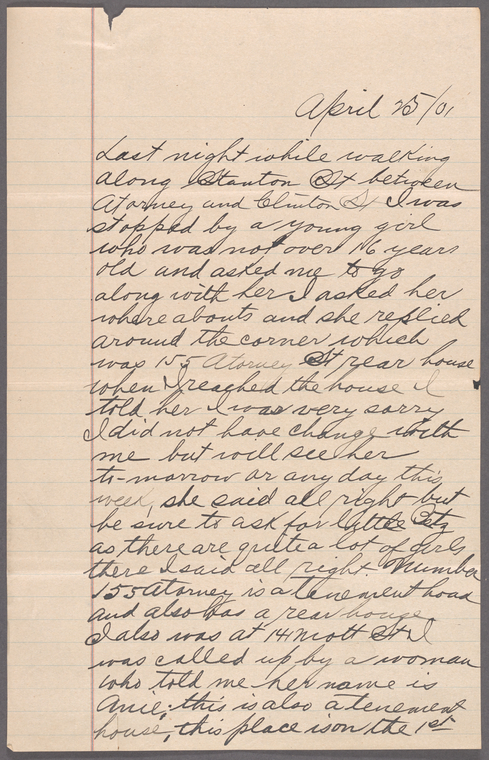 April 25/01
Last night while walking
along Stanton St between
Atorney and Clinton St I was
stopped by a young girl
who was not over 16 years
old and asked me to go
along with her I asked her
where abouts and she replied
around the corner which
was 155 Atorney St rear house
when I reached the house I
told her I was very sorry
I did not have change with
me but will see her
to-morrow or any day this
week, she said all right but
be sure to ask for little
as there are quite a lot of girls
there I said all right Number
155 Atorney is a tenement
and also has a rear house
I also was at 14 Mott St I
was called up by a woman
who told me her name is
this is also a tenement
house, this place is on the 1st